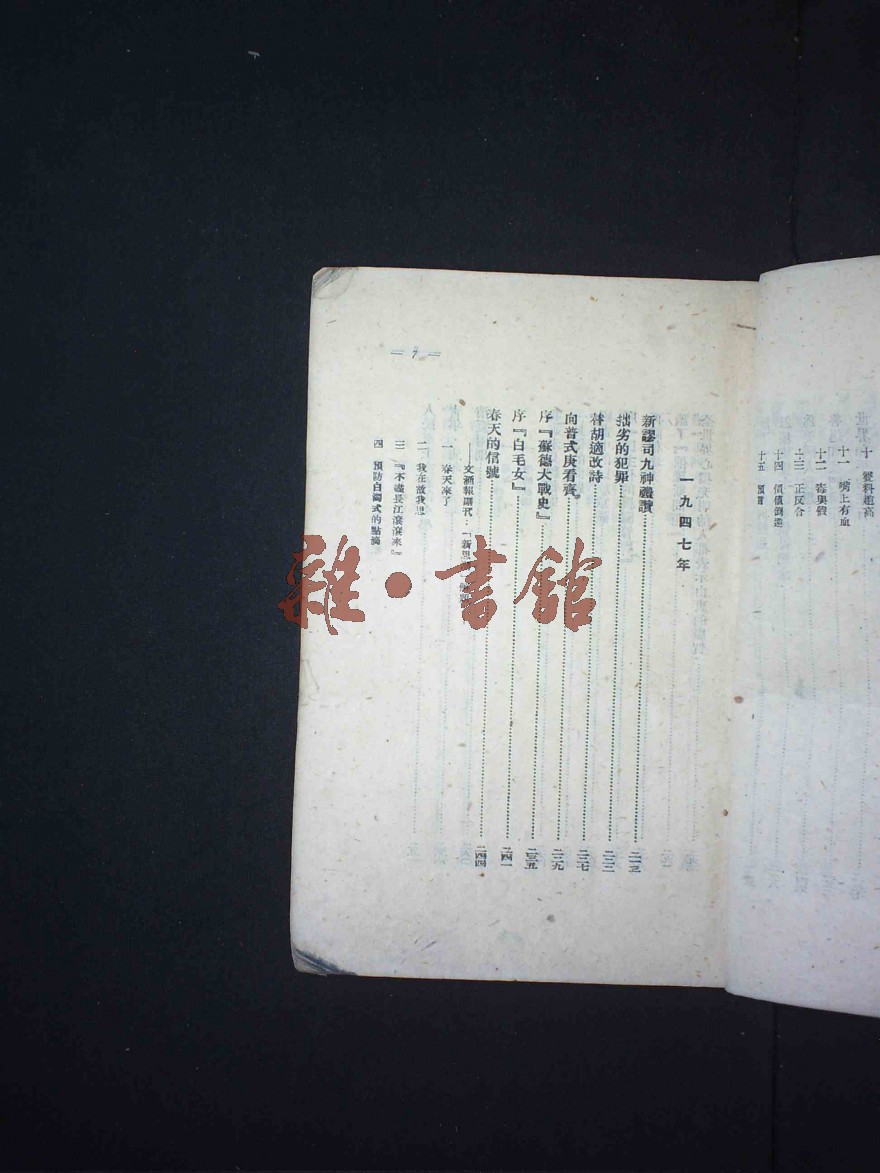 十 變料趙高
十一 嘴上有血
十二 毒與假
十三 正反合
十四 價値倒逆
十五 預言
一九四七年
新謬司九神禮讚……二一三
拙劣的犯罪……二二二
替胡適改詩……二二七
向普式庚看齊……二二九
序『蘇德大戰史』……二三五
序『白毛女』……二四一
春天的信號……二四四
——文滙報副刊
一 春天來了
二 我在故我思
三 『不盡長江滾滾來』
四 預防白蠋式的點滴
= 7 =
雜·書館